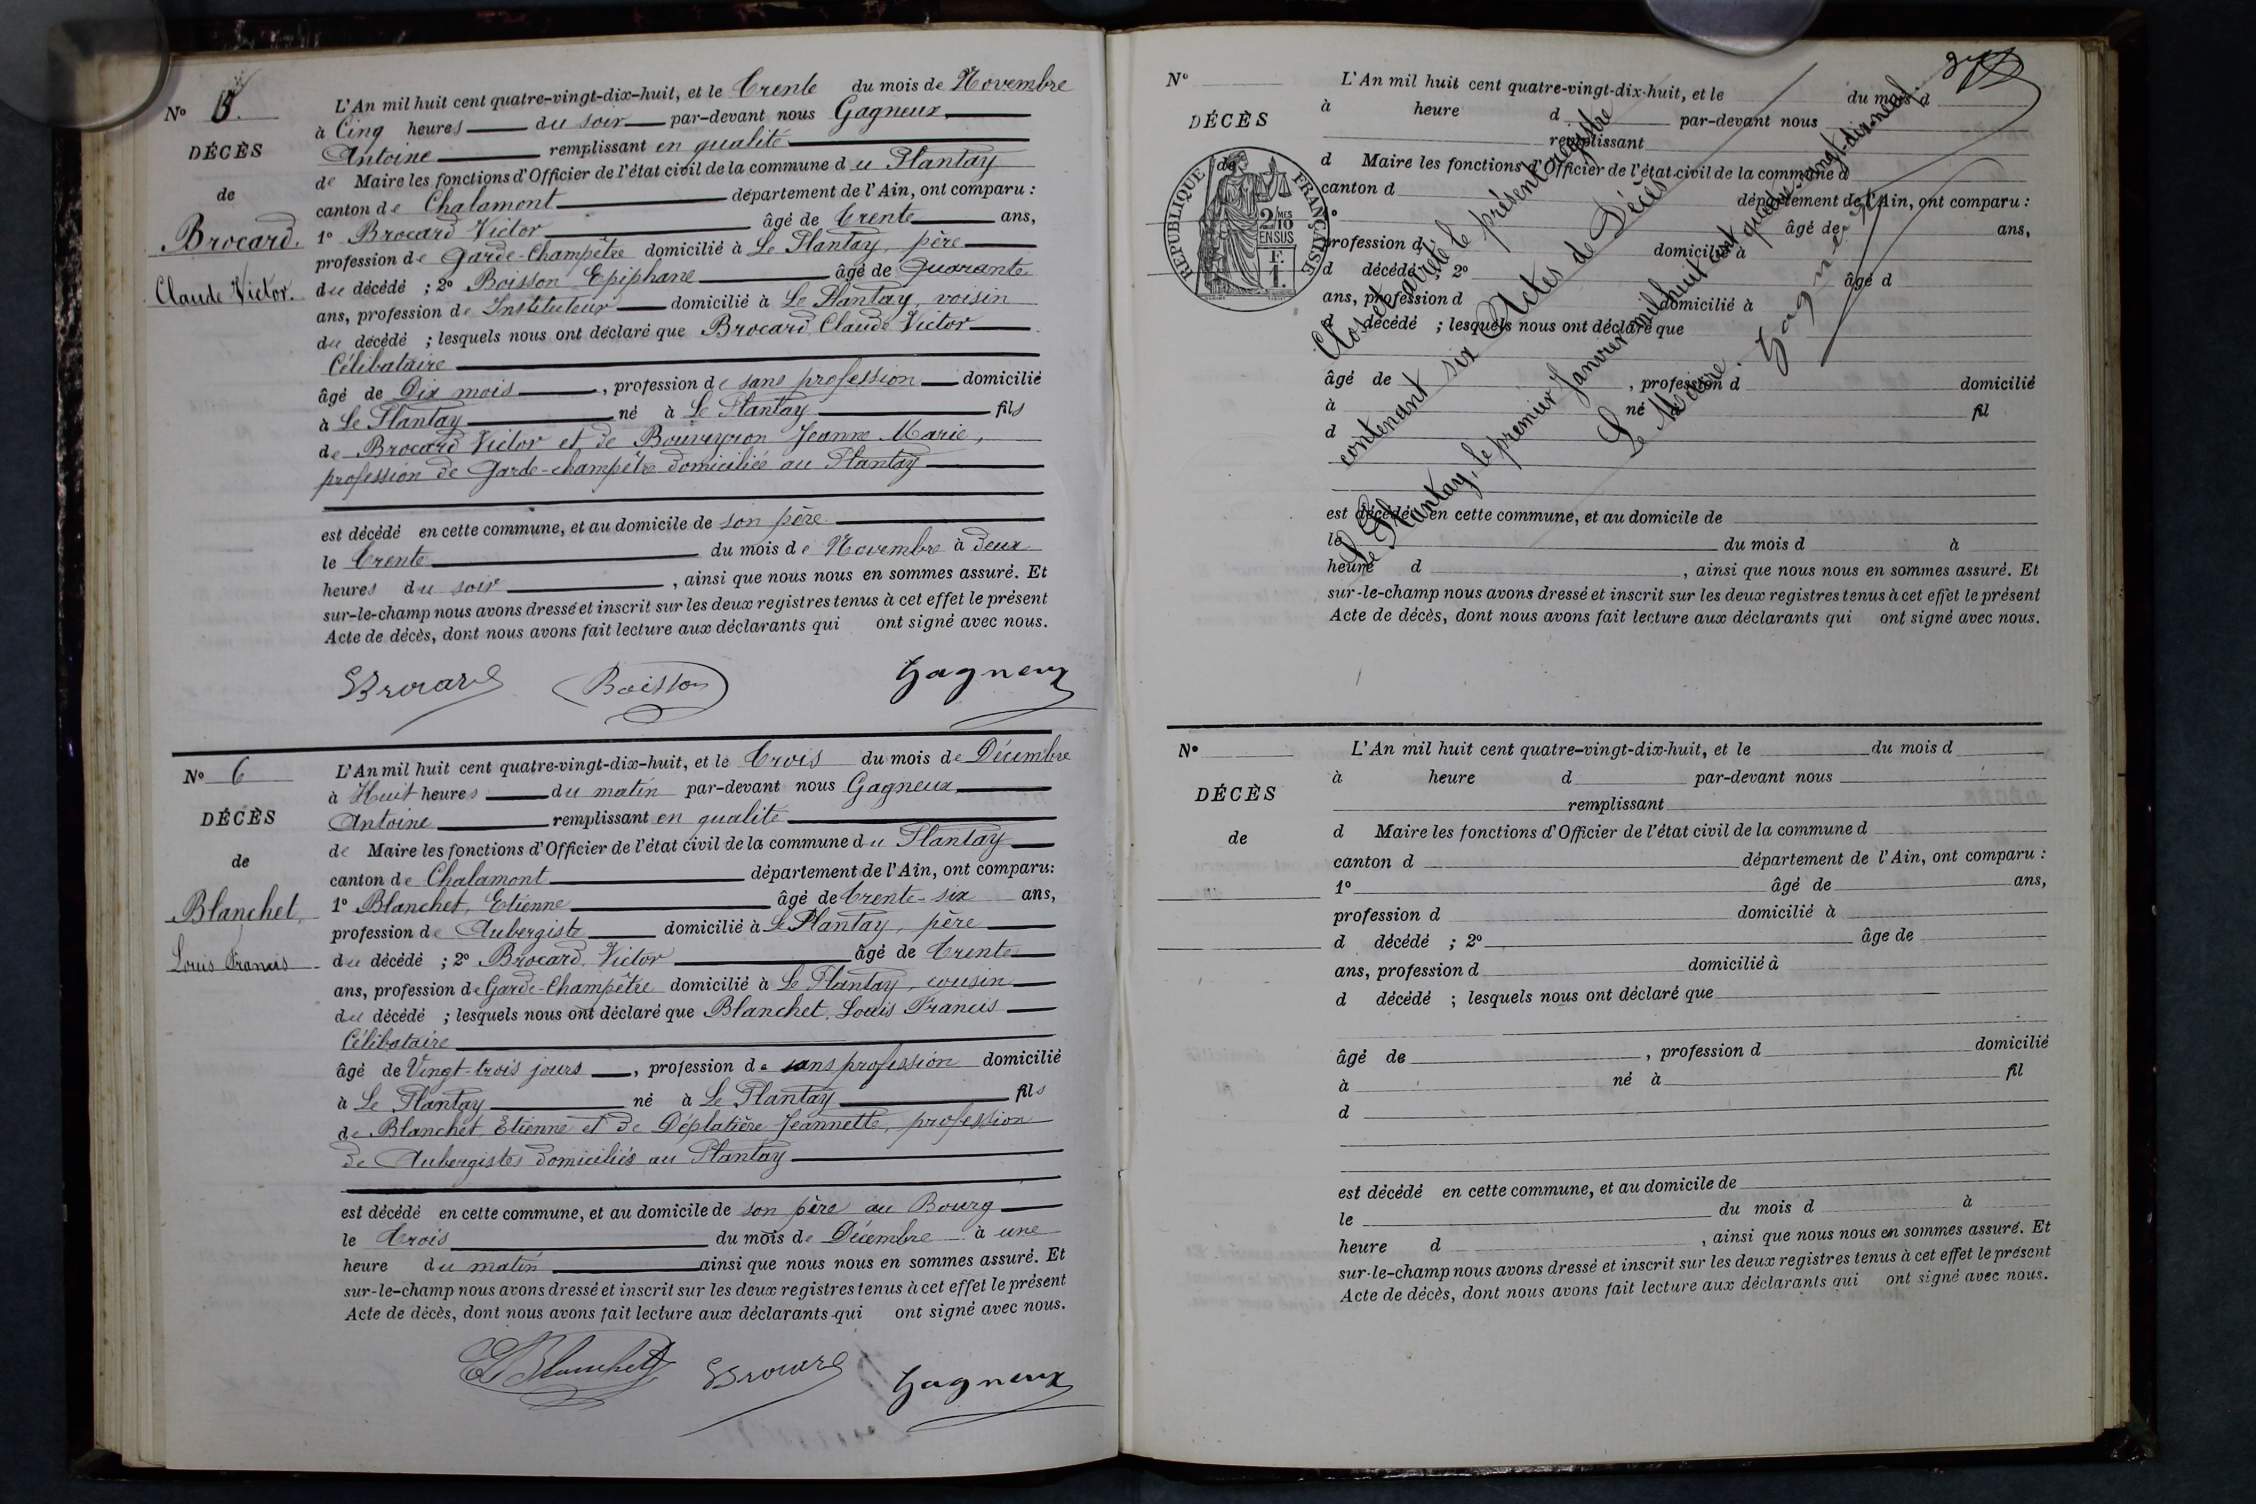 N° 5.
DÉCÈS
de
Brocard,
Claude Victor.
L'An mil huit cent quatre-vingt-dix-huit, et le Trente du mois de Novembre
à Cinq heures du soir par-devant nous Gagneux,
Antoine remplissant en qualité
de Maire les fonctions d'Officier de l'état civil de la commune du Plantay
canton de Chalamont département de l'Ain, ont comparu :
1° Brocard Victor âgé de trente ans,
profession de Garde-Champêtre domicilié à Le Plantay, père
du décédé ; 2° Boisson Epiphane âgé de Quarante
ans, profession de Instituteur domicilié à Le Plantay, voisin
du décédé ; lesquels nous ont déclaré que Brocard Claude Victor
Célibataire
âgé de Dix mois, profession de sans profession domicilié
à Le Plantay né à Le Plantay fils
de Brocard Victor et de Bouveyron Jeanne Marie,
profession de Garde-champêtre domiciliés au Plantay
est décédé en cette commune, et au domicile de son père
le trente du mois de Novembre à deux
heures du soir, ainsi que nous nous en sommes assuré. Et
sur-le-champ nous avons dressé et inscrit sur les deux registres tenus à cet effet le présent
Acte de décès, dont nous avons fait lecture aux déclarants qui ont signé avec nous.
Brocard Boisson Gagneux
N° 6
DÉCÈS
de
Blanchet,
Louis Francis
L'An mil huit cent quatre-vingt-dix-huit, et le trois du mois de Décembre
à Huit heures du matin par-devant nous Gagneux,
Antoine remplissant en qualité
de Maire les fonctions d'Officier de l'état civil de la commune du Plantay
canton de Chalamont département de l'Ain, ont comparu :
1° Blanchet, Etienne âgé de trente-six ans,
profession de Aubergiste domicilié à Le Plantay, père
du décédé ; 2° Brocard, Victor âgé de trente
ans, profession de Garde-Champêtre domicilié à Le Plantay, cousin
du décédé ; lesquels nous ont déclaré que Blanchet, Louis Francis
Célibataire
âgé de Vingt-trois jours, profession de sans profession domicilié
à Le Plantay né à Le Plantay fils
de Blanchet, Etienne et de Déplatière Jeannette, profession
de Aubergistes domiciliés au Plantay
est décédé en cette commune, et au domicile de son père au Bourg
le trois du mois de Décembre à une
heure du matin ainsi que nous nous en sommes assuré. Et
sur-le-champ nous avons dressé et inscrit sur les deux registres tenus à cet effet le présent
Acte de décès, dont nous avons fait lecture aux déclarants qui ont signé avec nous.
E Blanchet Brocard Gagneux
N°
DÉCÈS
de
RÉPUBLIQUE FRANÇAISE
2/10 MES
EN SUS
F.
1.
L'An mil huit cent quatre-vingt-dix-huit, et le du mois d
à heure d par-devant nous
remplissant
d Maire les fonctions d'Officier de l'état civil de la commune d
canton d département de l'Ain, ont comparu :
1° âgé de ans,
profession d domicilié à
d décédé ; 2° âgé d
ans, profession d domicilié à
d décédé ; lesquels nous ont déclaré que
âgé de , profession d domicilié
à né à fil
d
est décédé en cette commune, et au domicile de
le du mois d à
heure d , ainsi que nous nous en sommes assuré. Et
sur-le-champ nous avons dressé et inscrit sur les deux registres tenus à cet effet le présent
Acte de décès, dont nous avons fait lecture aux déclarants qui ont signé avec nous.
Clos et arrêté le présent registre
contenant six Actes de Décès
Le Plantay, le premier Janvier mil huit cent quatre-vingt-dix-neuf.
Le Maire.
Gagneux
N°
DÉCÈS
de
L'An mil huit cent quatre-vingt-dix-huit, et le du mois d
à heure d par-devant nous
remplissant
d Maire les fonctions d'Officier de l'état civil de la commune d
canton d département de l'Ain, ont comparu :
1° âgé de ans,
profession d domicilié à
d décédé ; 2° âge de
ans, profession d domicilié à
d décédé ; lesquels nous ont déclaré que
âgé de , profession d domicilié
à né à fil
d
est décédé en cette commune, et au domicile de
le du mois d à
heure d , ainsi que nous nous en sommes assuré. Et
sur-le-champ nous avons dressé et inscrit sur les deux registres tenus à cet effet le présent
Acte de décès, dont nous avons fait lecture aux déclarants qui ont signé avec nous.